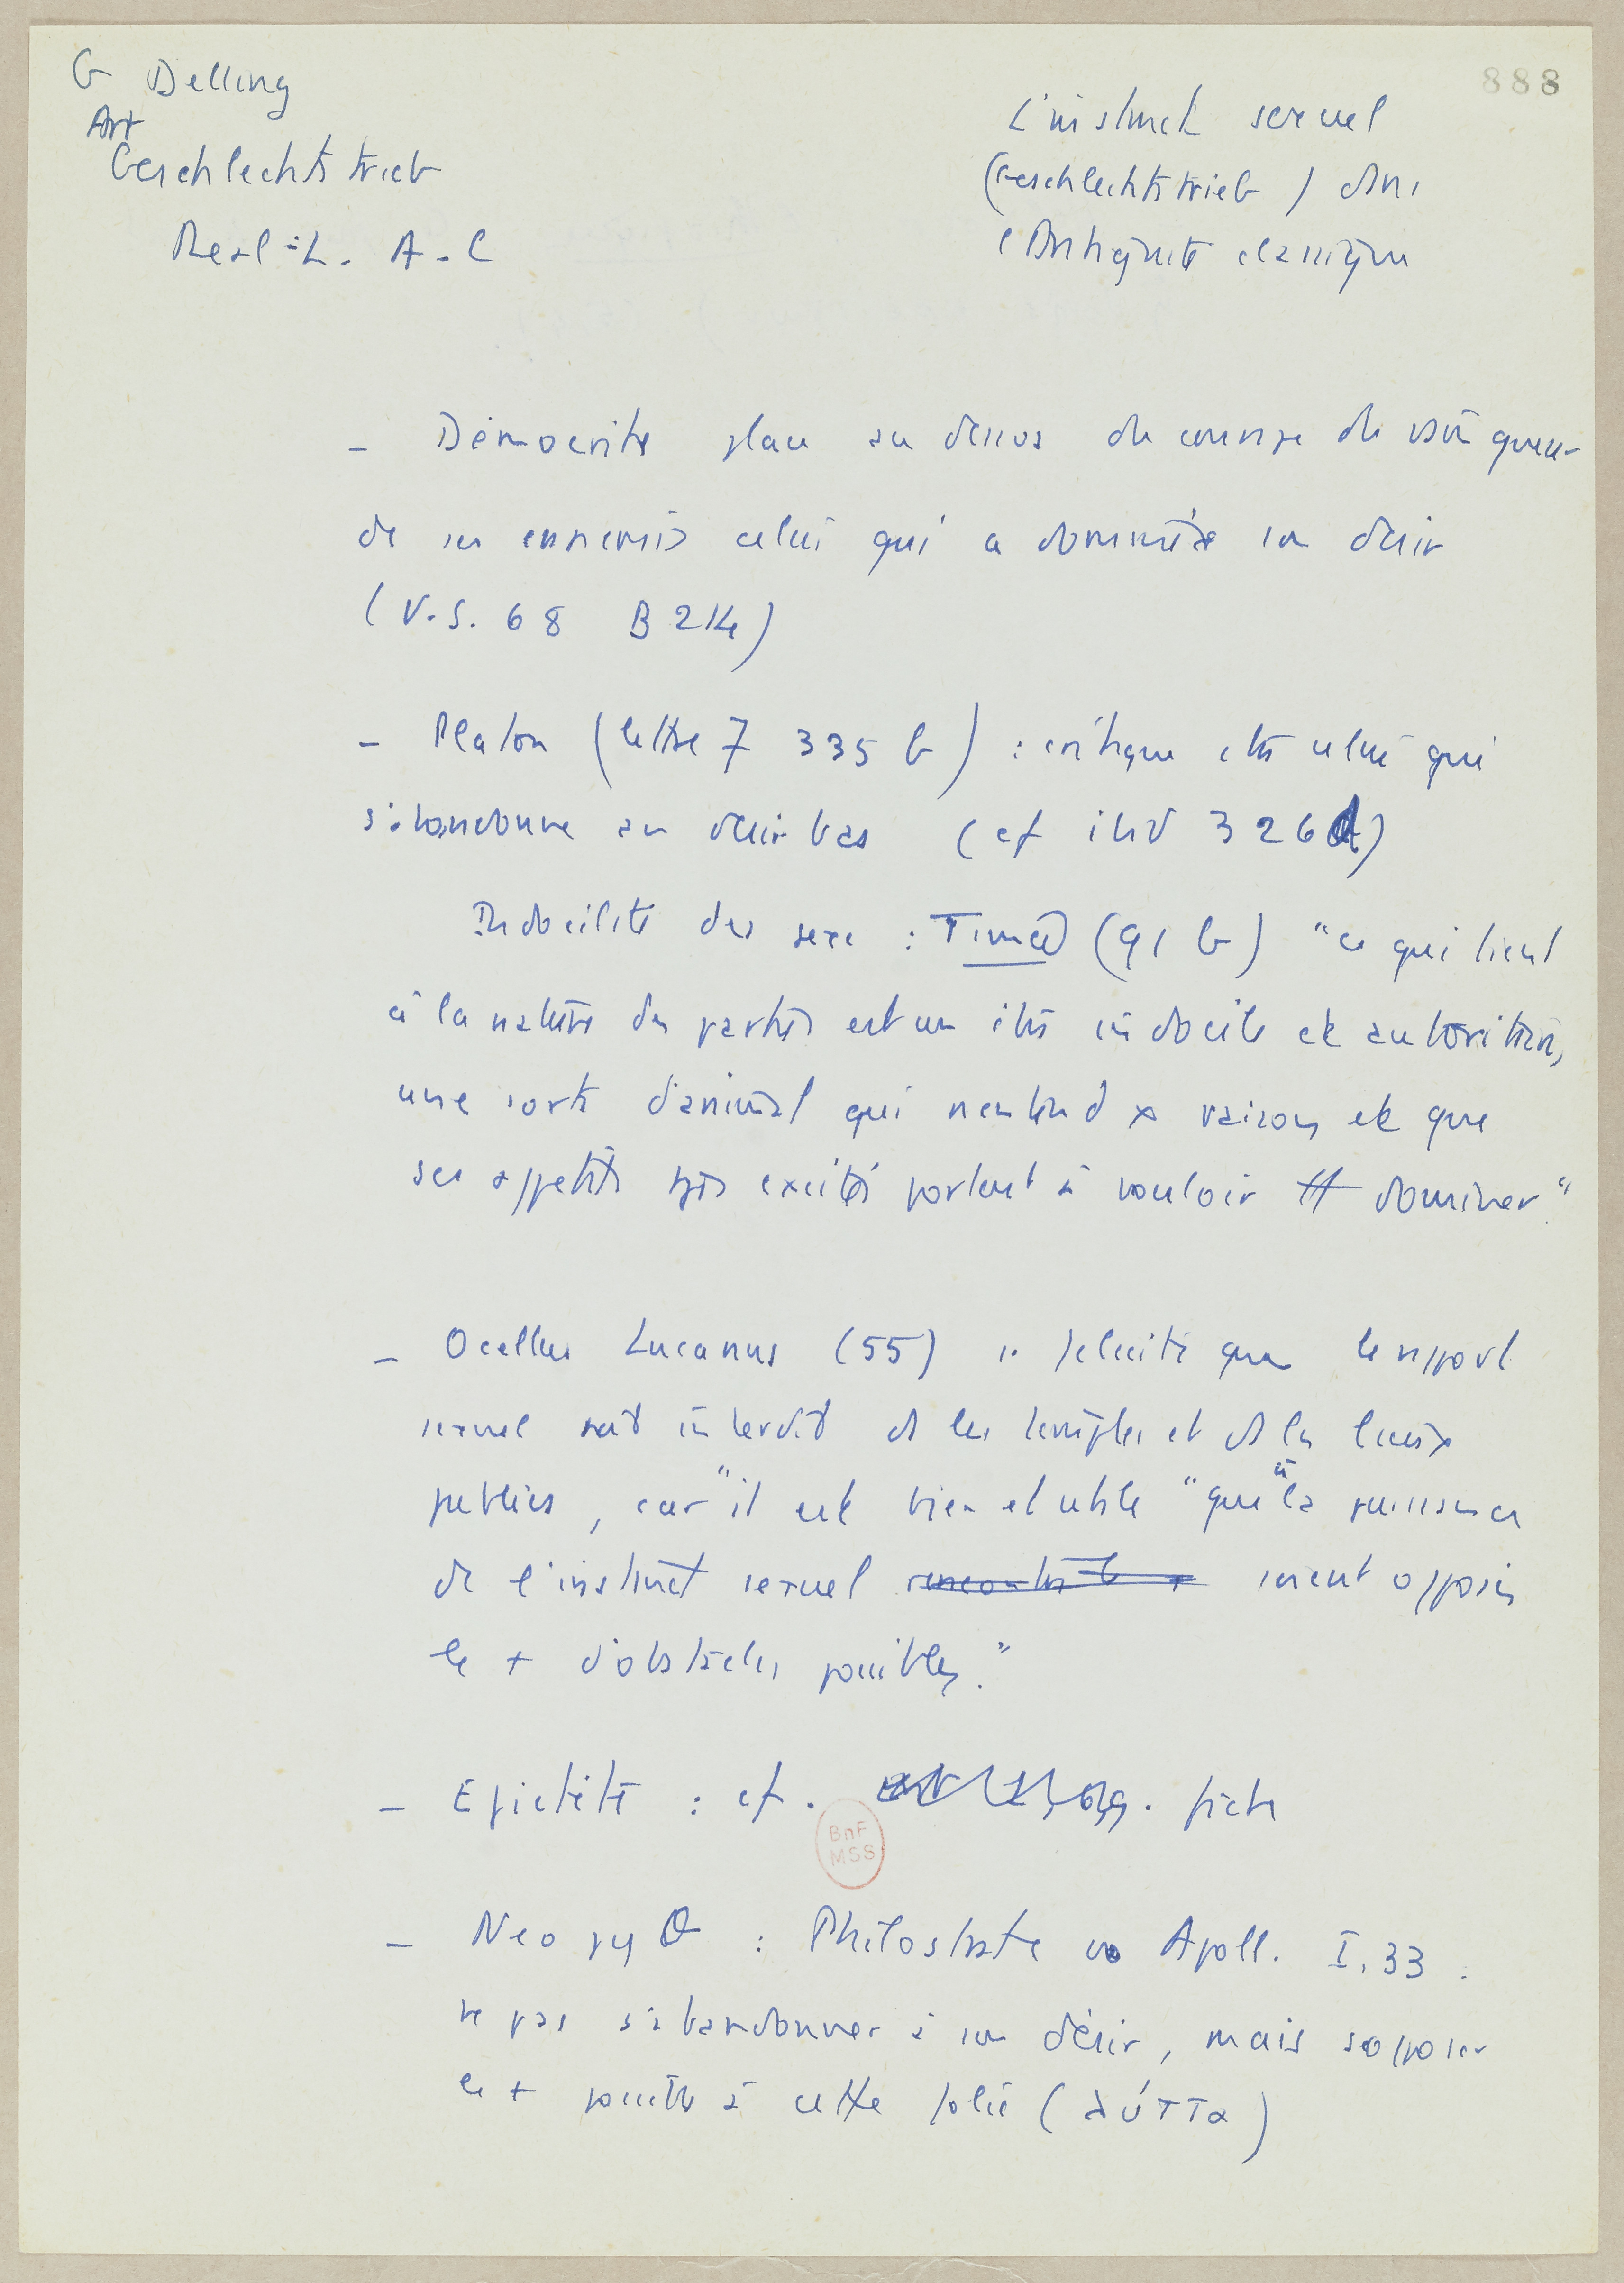 888
G Delling
Art
Geschlechtstrieb
Real-L. A.C
L'instinct sexuel
(Geschlechtstrieb) dans
l'Antiquité classique
- Démocrite place au dessus du courage de vain queur
de ses ennemis celui qui a dominé son désir
(V.S. 68 B 214)
- Platon (lettre 7 335 b) : critique celui qui
s'abandonne au désir bas (cf ibid 326 d)
Indocilité du sexe : Timée (91 b) "ce qui tient
à la nature des parties est un être indocile et autoritaire,
une sorte d'animal qui n'entend x raison et que
ses appétits tjrs excités portent à vouloir tt dominer"
- Ocellus Lucanus (55) félicite que le rapport
sexuel soit interdit ds les temples et ds les lieux
publics, car "il est bien et utile" "qu'à la puissance
de l'instinct sexuel soient opposés
le + d'obstacles possibles."
- Epictète : cf. fiche
- Neo pyθ : Philostrate Apoll. I. 33 :
ne pas s'abandonner à son désir, mais s'opposer
le + possible à cette folie (λύττα)
BnF
MSS